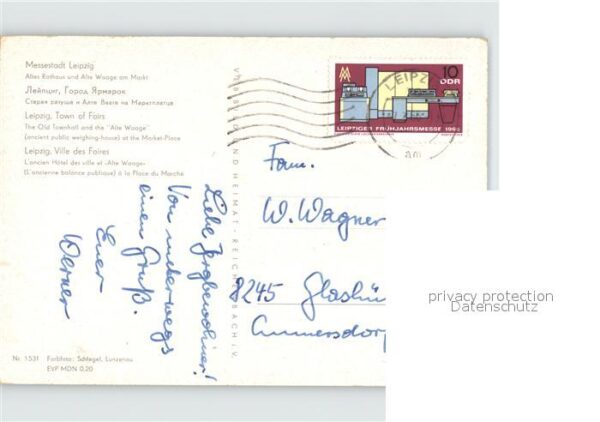 Messestadt Leipzig
Altes Rathaus und Alte Waage am Markt
Лейпциг, Город Ярмарок
Старая ратуша и Алте Вааге на Маркетплатце
Leipzig, Town of Fairs
The Old Townhall and the "Alte Waage"
(ancient public weighing-house) at the Market-Place
Leipzig, Ville des Foires
L'ancien Hôtel des ville et «Alte Waage»
(L'ancienne balance publique) à la Place du Marché
Liebe Bergbewohner!
Von unterwegs
einen Gruß.
Euer
Werner
Nr. 1531 Farbfoto: Schlegel, Lunzenau
EVP MDN 0,20
VERLAG BILD UND HEIMAT · REICHENBACH i. V.
10
DDR
LEIPZIGER FRÜHJAHRSMESSE
LEIPZ
Fam.
W. Wagner
8245 Glashü
Cunnersdorf
privacy protection
Datenschutz